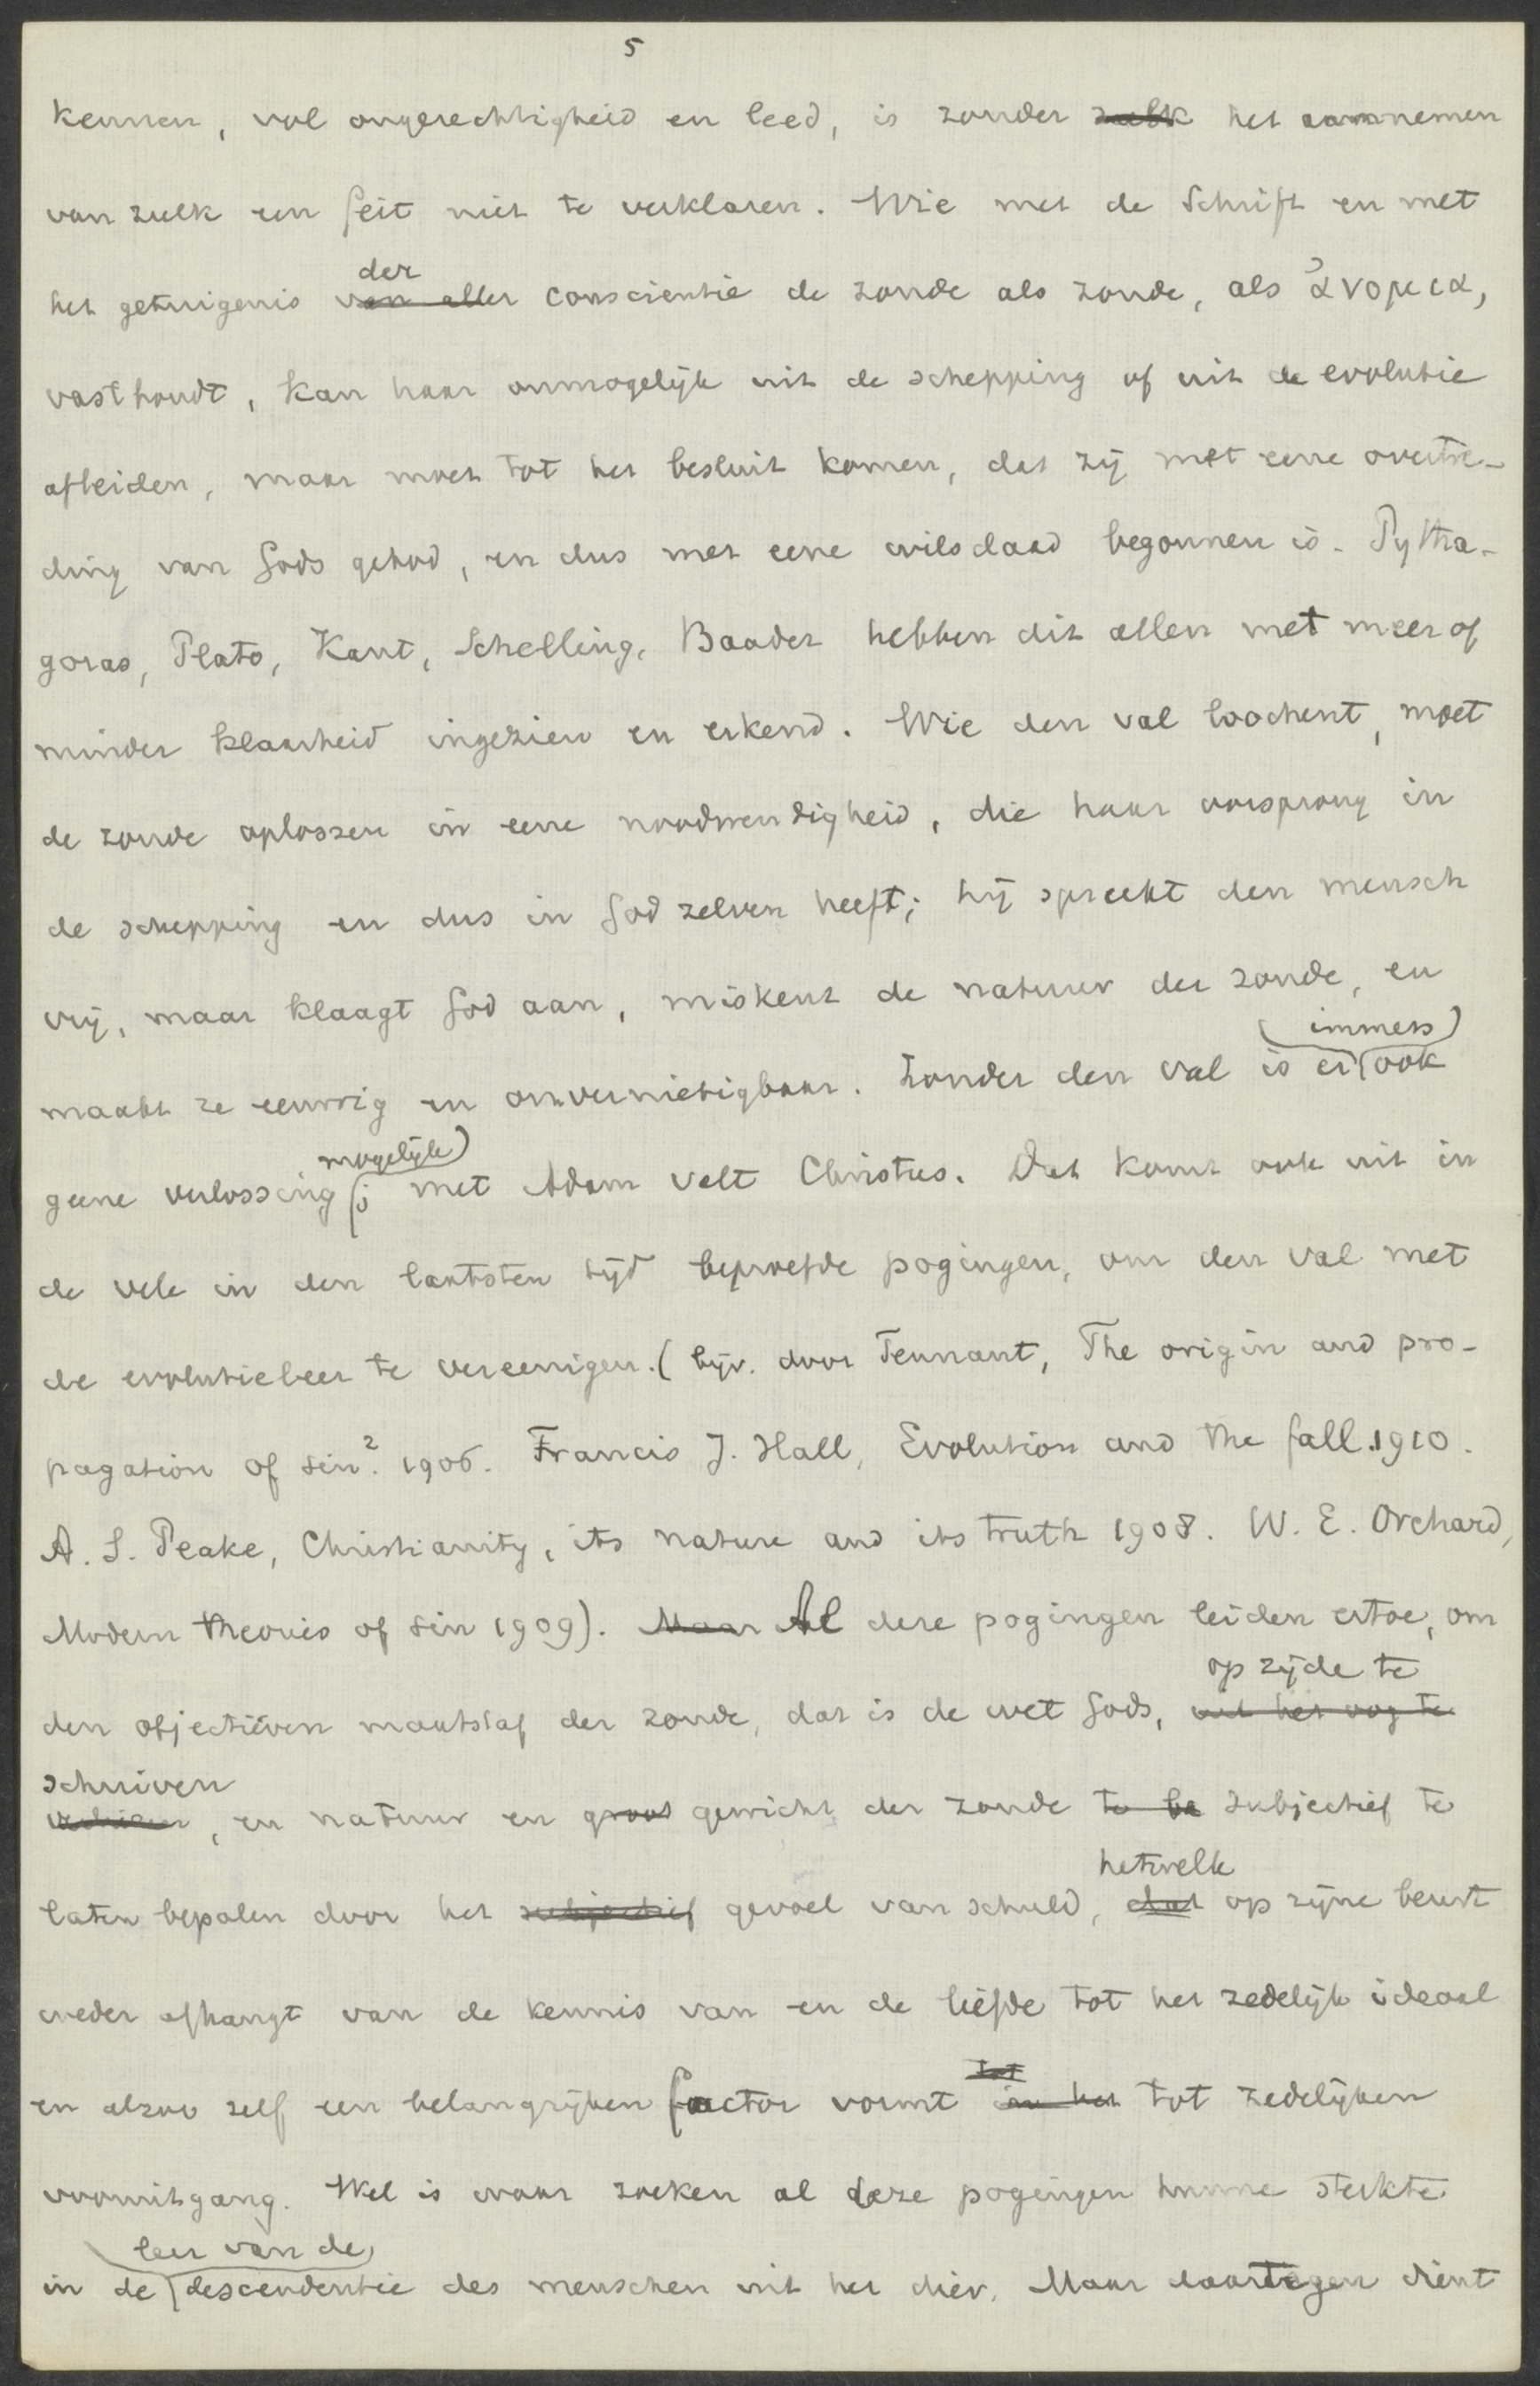 5
kennen, vol ongerechtigheid en leed, is zonder zulk het aannemen
van zulk een feit niet te verklaren. Wie met de Schrift en met
der
het getuigenis van aller conscientie de zonde als zonde, als ἀνομια,
vasthoudt, kan haar onmogelijk uit de schepping of uit de evolutie
afleiden, maar moet tot het besluit komen, dat zij met eene overtre-
ding van Gods gebod, en dus met eene wilsdaad begonnen is. Pytha-
goras, Plato, Kant, Schelling, Baader hebben dit allen met meer of
minder klaarheid ingezien en erkend. Wie den val loochent, moet
de zonde oplossen in eene noodwendigheid, die haar oorsprong in
de schepping en dus in God zelven heeft; hij spreekt den mensch
vrij, maar klaagt God aan, miskent de natuur der zonde, en
immers
maakt ze eeuwig en onvernietigbaar. Zonder den val is er ook
mogelijk
geene verlossing; met Adam valt Christus. Dat komt ook uit in
de vele in den laatsten tijd beproefde pogingen, om den val met
de evolutieleer te vereenigen. (bijv. door Tennant, The origin and pro-
pagation of sin.² 1906. Francis J. Hall, Evolution and the fall. 1910.
A. S. Peake, Christianity, its nature and its truth 1908. W. E. Orchard,
Modern theories of sin 1909). Maar Al deze pogingen leiden ertoe, om
op zijde te
den objectieven maatstaf der zonde, dat is de wet Gods, uit het oog te
schuiven
verliezen, en natuur en groot gewicht der zonde te be subjectief te
hetwelk
laten bepalen door het subjectief gevoel van schuld, dat op zijne beurt
weder afhangt van de kennis van en de liefde tot het zedelijk ideaal
tot
en alzoo zelf een belangrijken factor vormt in het tot zedelijken
vooruitgang. Wel is waar zoeken al deze pogingen hunne sterkte
leer van de
in de descendentie des menschen uit het dier. Maar daartegen dient